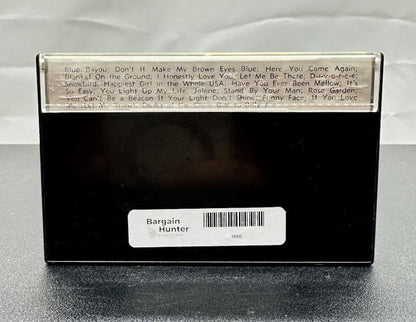 Blue Bayou; Don't It Make My Brown Eyes Blue, Here You Come Again;
Blanket On the Ground; I Honestly Love You, Let Me Be There; D-i-v-o-r-c-e,
Snowbird, Happiest Girl in the Whole USA, Have You Ever Been Mellow; It's
So Easy; You Light Up My Life, Jolene; Stand By Your Man; Rose Garden;
You Can't Be a Beacon If Your Light Don't Shine; Funny Face; If You Love
Me
Bargain
Hunter